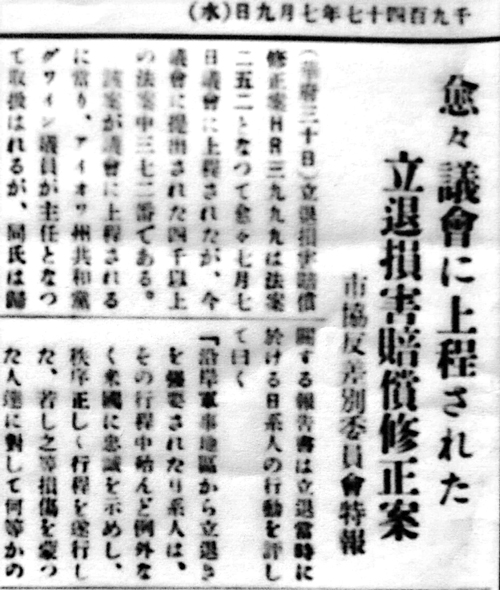 千九百四十七年七月九日(水)
愈々議會に上程された
立退損害賠償修正案
市協反差別委員會特報
(華府三十日)立退損害賠償
修正案HR三九九九は法案
二五二となつて愈々七月七
日議會に上程されたが、今
議會に提出された四千以上
の法案中三七二番である。
該案が議會に上程される
に當り、アイオワ州共和黨
グワイン議員が主任となつ
て取扱はれるが、同氏は歸
關する報告書は立退當時に
於ける日系人の行動を評し
て曰く
「沿岸軍事地區から立退き
を强要されたり系人は、
その行程中殆んど例外な
く米國に忠誠を示めし、
秩序正しく行程を遂行し
た、若し之等損傷を蒙つ
た人達に對して何等かの